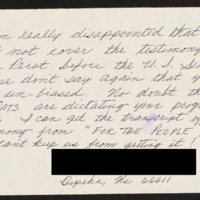 m really disappointed that
not cover the testimony
Perot before the U.S. Sen
e don't say again that y
un-biased. No doubt th
CATS are dictating your prog
I can get the transcript of
mony from "FOR THE PEOPLE
cant keep us from getting it!
Topeka, Ks 66611